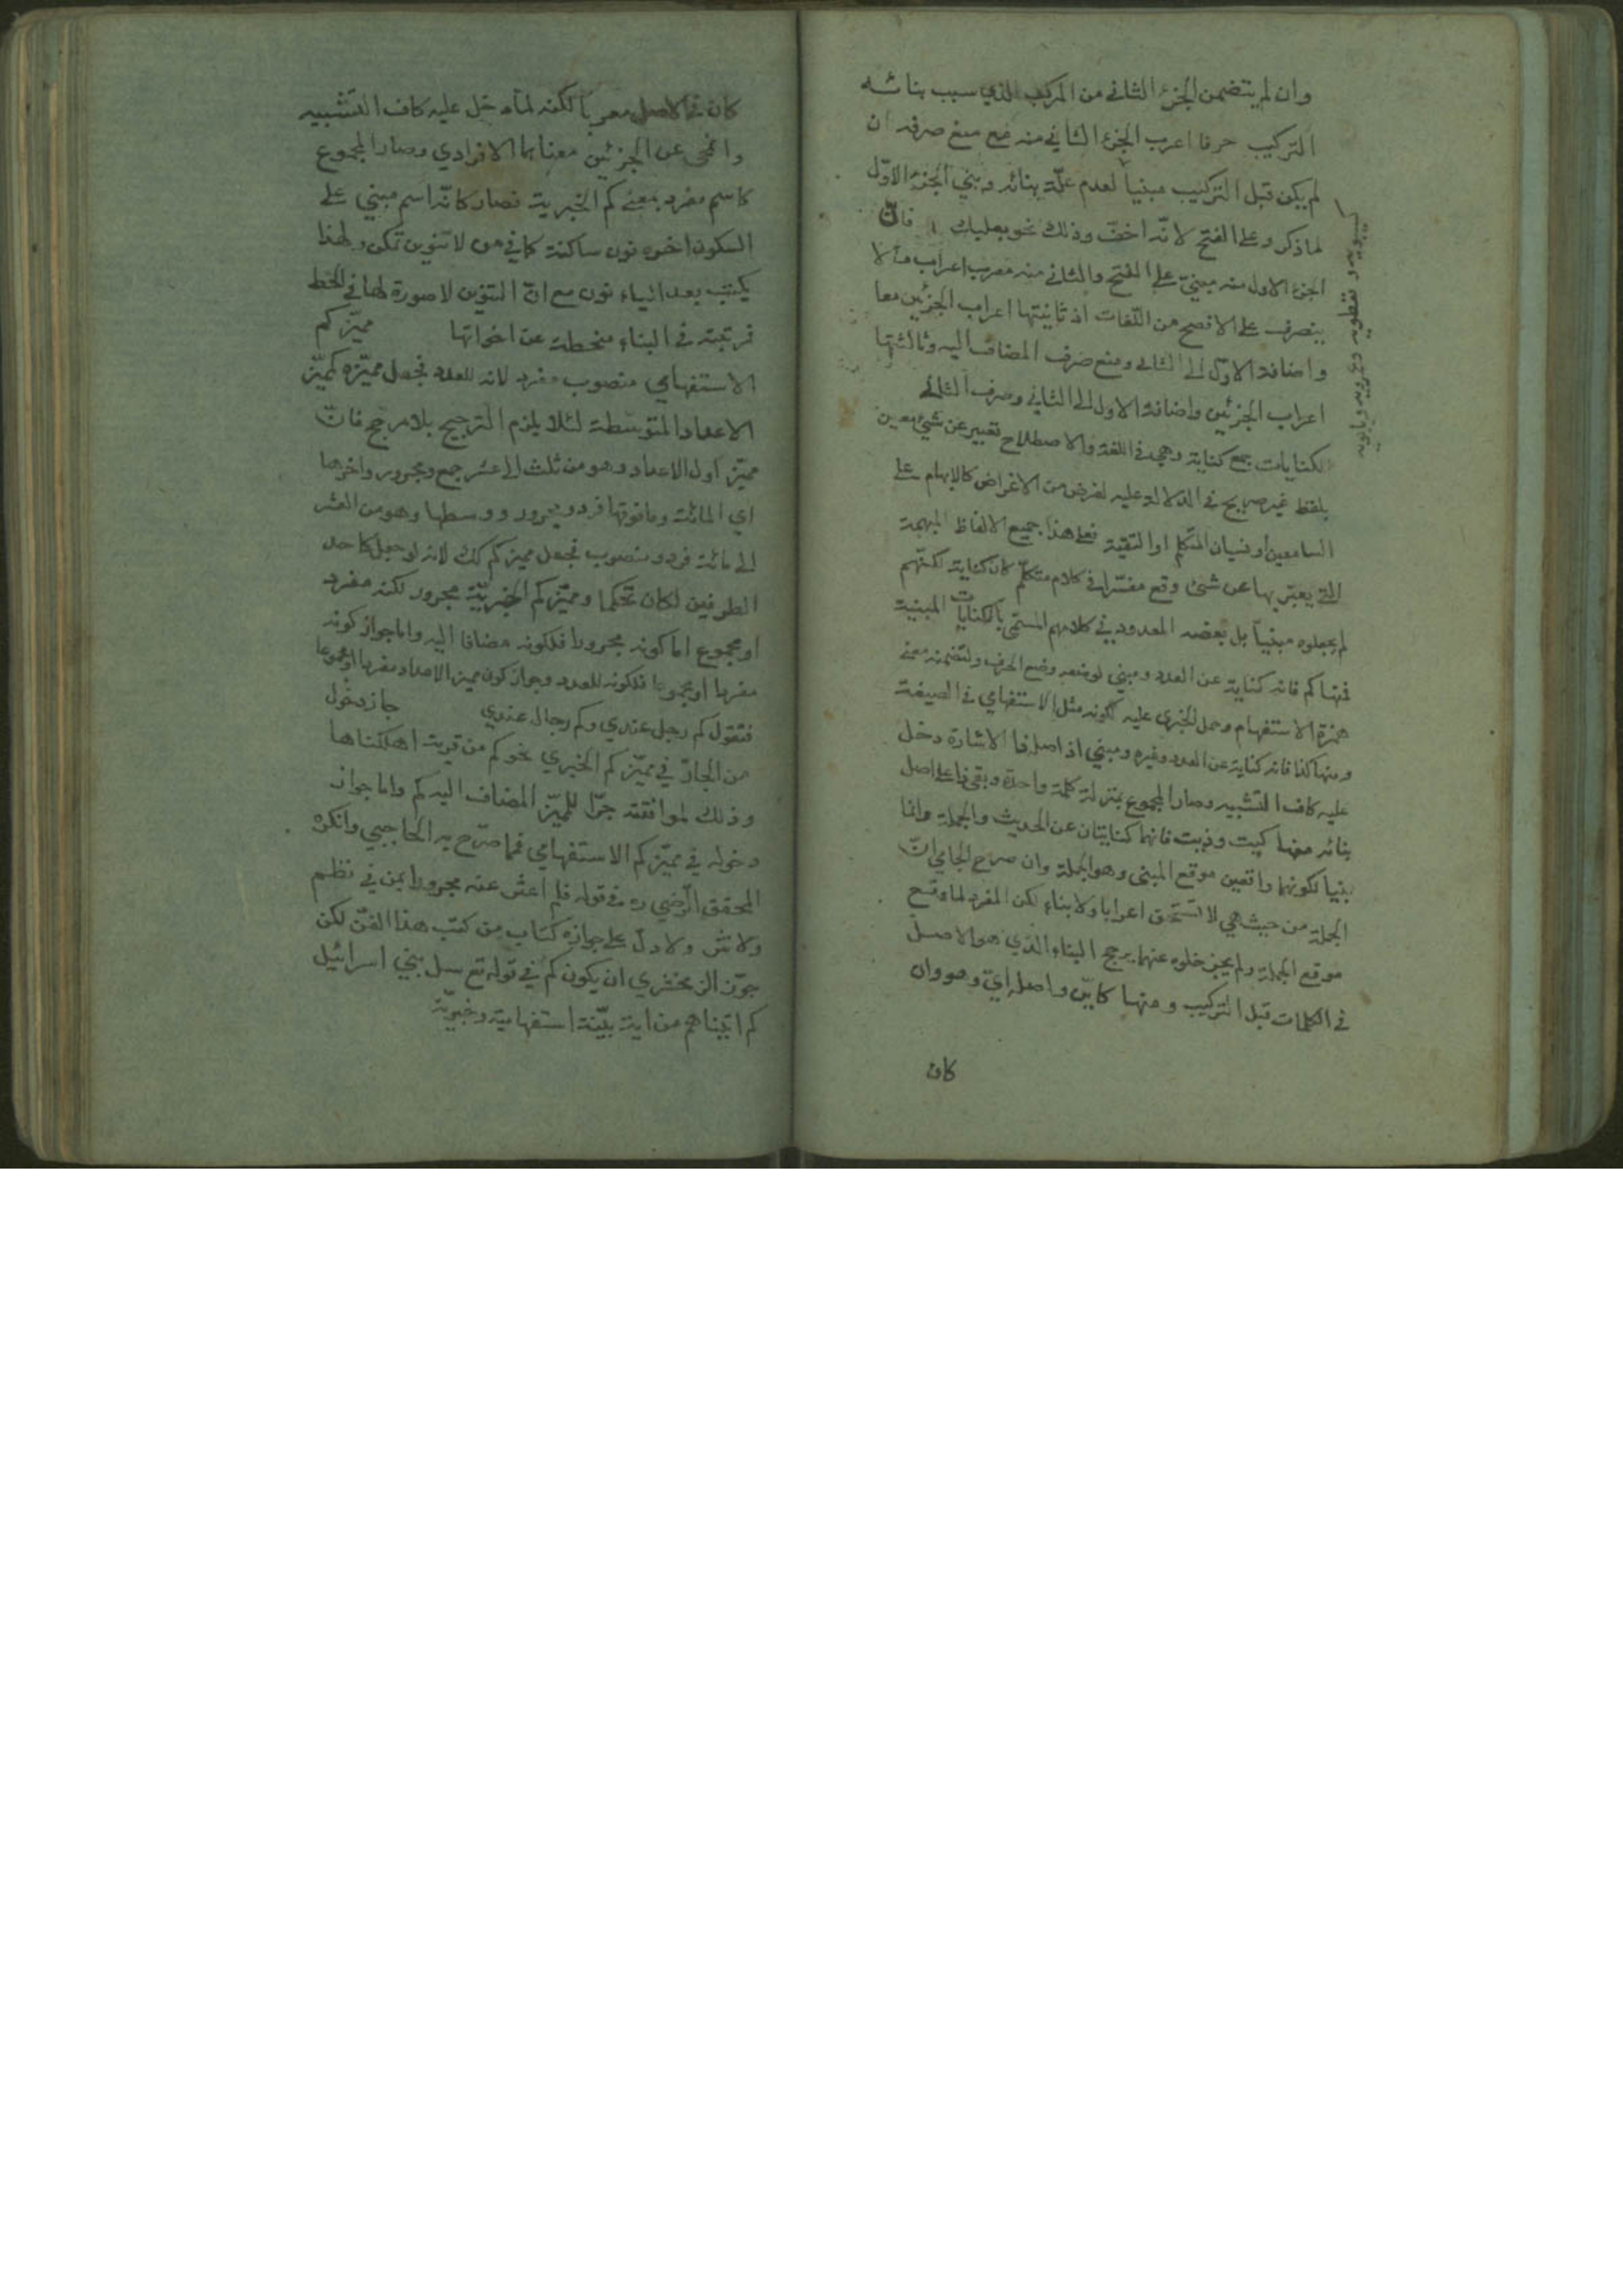 وان لم يتضمن الجزء الثاني من المركب الذي سبب بنائه
التركيب حرفا اعرب الجزء الثاني منه مع منع صرفه ان
لم يكن قبل التركيب مبنياً لعدم علّة بنائه وبني الجزء الاوّل
لما ذكر وعلى الفتح لانّه اخفّ وذلك نحو بعلبك فانّ
الجزء الاول منه مبنيّ على الفتح والثاني منه معرب اعراب ما لا
ينصرف على الافصح من اللّغات اذ ثانيتها اعراب الجزئين معا
واضافة الاوّل الى الثاني ومنع صرف المضاف اليه وثالثتها
اعراب الجزئين واضافة الاول الى الثاني وصرف الثاني
الكنايات جمع كناية وهي في اللغة والاصطلاح تعبير عن شيئ معين
بلفظ غير صريح في الدلالة عليه لغرض من الاغراض كالابهام على
السامعين او نسيان المتكلم او التقية فعلى هذا جميع الالفاظ المبهمة
التي يعبّر بها عن شيئ وقع مفسّرا في كلام متكلّم كان كناية لكنّهم
لم يجعلوه مبنياً بل بعضه المعدود في كلامهم المسمّى بالكنايات المبنية
فمنها كم فانه كناية عن العدد ومبني لوضعه وضع الحرف ولتضمنه معنى
همزة الاستفهام وحمل الخبرى عليه لكونه مثل الاستفهامي في الصيغة
ومنها كذا فانه كناية عن العدد وغيره ومبني اذ اصله ذا الاشارة دخل
عليه كاف التشبيه وصار المجموع بمنزلة كلمة واحدة وبقي ذا على اصل
بنائه منها كيت وذيت فانهما كنايتان عن الحديث والجملة وانما
بنيا لكونهما واقعين موقع المبنى وهو الجملة وان صرح الجامي انّ
الجملة من حيث هي لا تستحق اعرابا ولا بناء لكن المفرد لما وقع
موقع الجملة ولم يجز خلوه عنهما يرجح البناء الذي هو الاصل
في الكلمات قبل التركيب ومنها كايّن واصله ايّ وهو وان
كان
كان في الاصل معرباً لكنه لما دخل عليه كاف التّشبيه
وانمحى عن الجزئين معناهما الافرادي وصار المجموع
كاسم مفرد بمعنى كم الخبرية فصار كانّه اسم مبني على
السكون اخره نون ساكنة كما في من لا تنوين تمكن ولهذا
يكتب بعد الياء نون مع انّ التنوين لا صورة لها في الخط
فرتبته في البناء منحطة عن اخواتها مميّز كم
الاستفهامي منصوب مفرد لانه للعدد فجعل مميّزه كمميّز
الاعداد المتوسّطة لئلا يلزم الترجيح بلا مرجح فانّ
مميّز اول الاعداد وهو من ثلث الى عشر جمع ومجرور واخرها
اي المائة وما فوقها فرد ومجرور ووسطها وهو من العشر
الى مائة فرد ومنصوب فجعل مميز كم كك لانه لو جعل كاحد
الطرفين لكان تحكما ومميّز كم الخبريّة مجرور لكنه مفرد
او مجموع اما كونه مجرورا فلكونه مضافا اليه واما جواز كونه
مفردا او مجموعا فلكونه للعدد وجواز كون مميز الاعداد مفردا او مجموعا
فتقول كم رجل عندي وكم رجال عندي جاز دخول
من الجارّ في مميّز كم الخبري نحو كم من قرية اهلكناها
وذلك لموافقته جرّا للمميّز المضاف اليه كم واما جواز
دخوله في مميّز كم الاستفهامي فما صرّح به الحاجبي وانكره
المحقق الرّضي ره في قوله فلم اعثر عنه مجرورا بمن في نظم
ولا نثر ولا دلّ على جوازه كتاب من كتب هذا الفنّ لكن
جوّز الزمخشري ان يكون كم في قوله تع سل بني اسرائيل
كم اتيناهم من اية بيّنة استفهامية وخبريّة